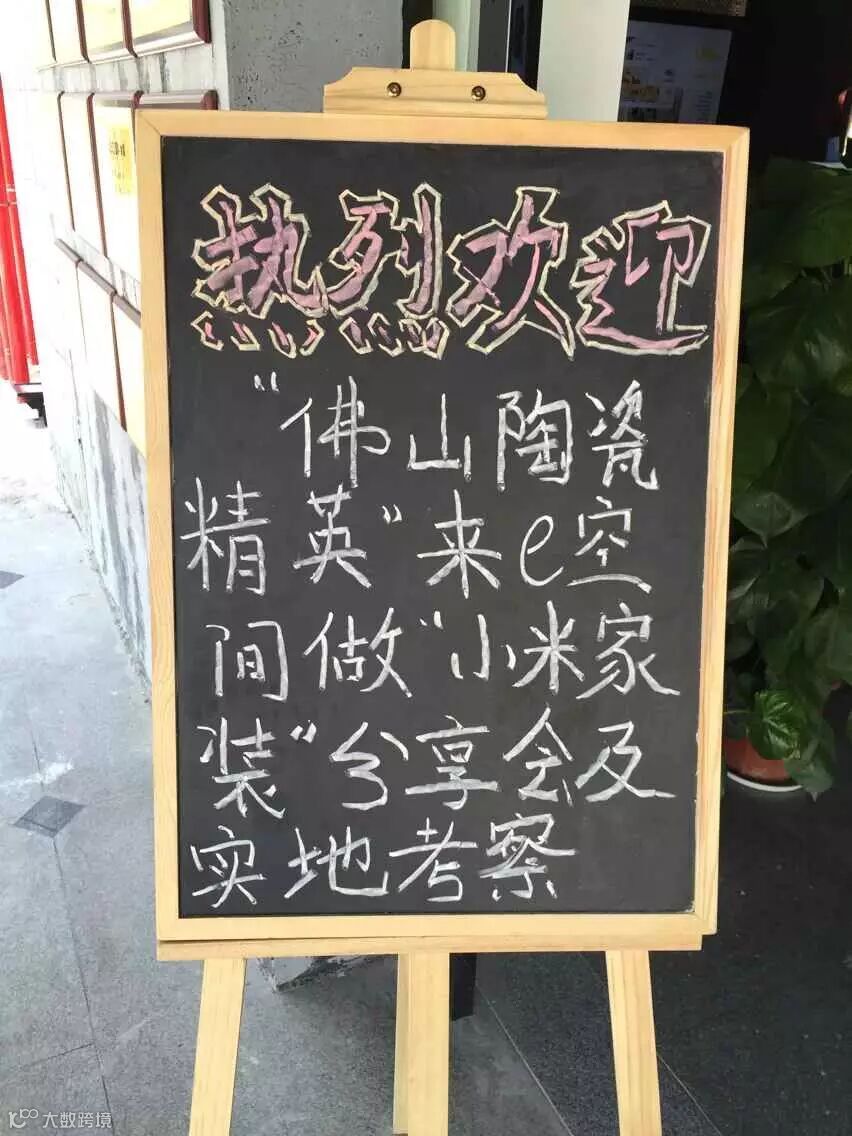 热烈欢迎
“佛山陶瓷
精英”来e空
间做“小米家
装”分享会及
实地考察
大数跨境